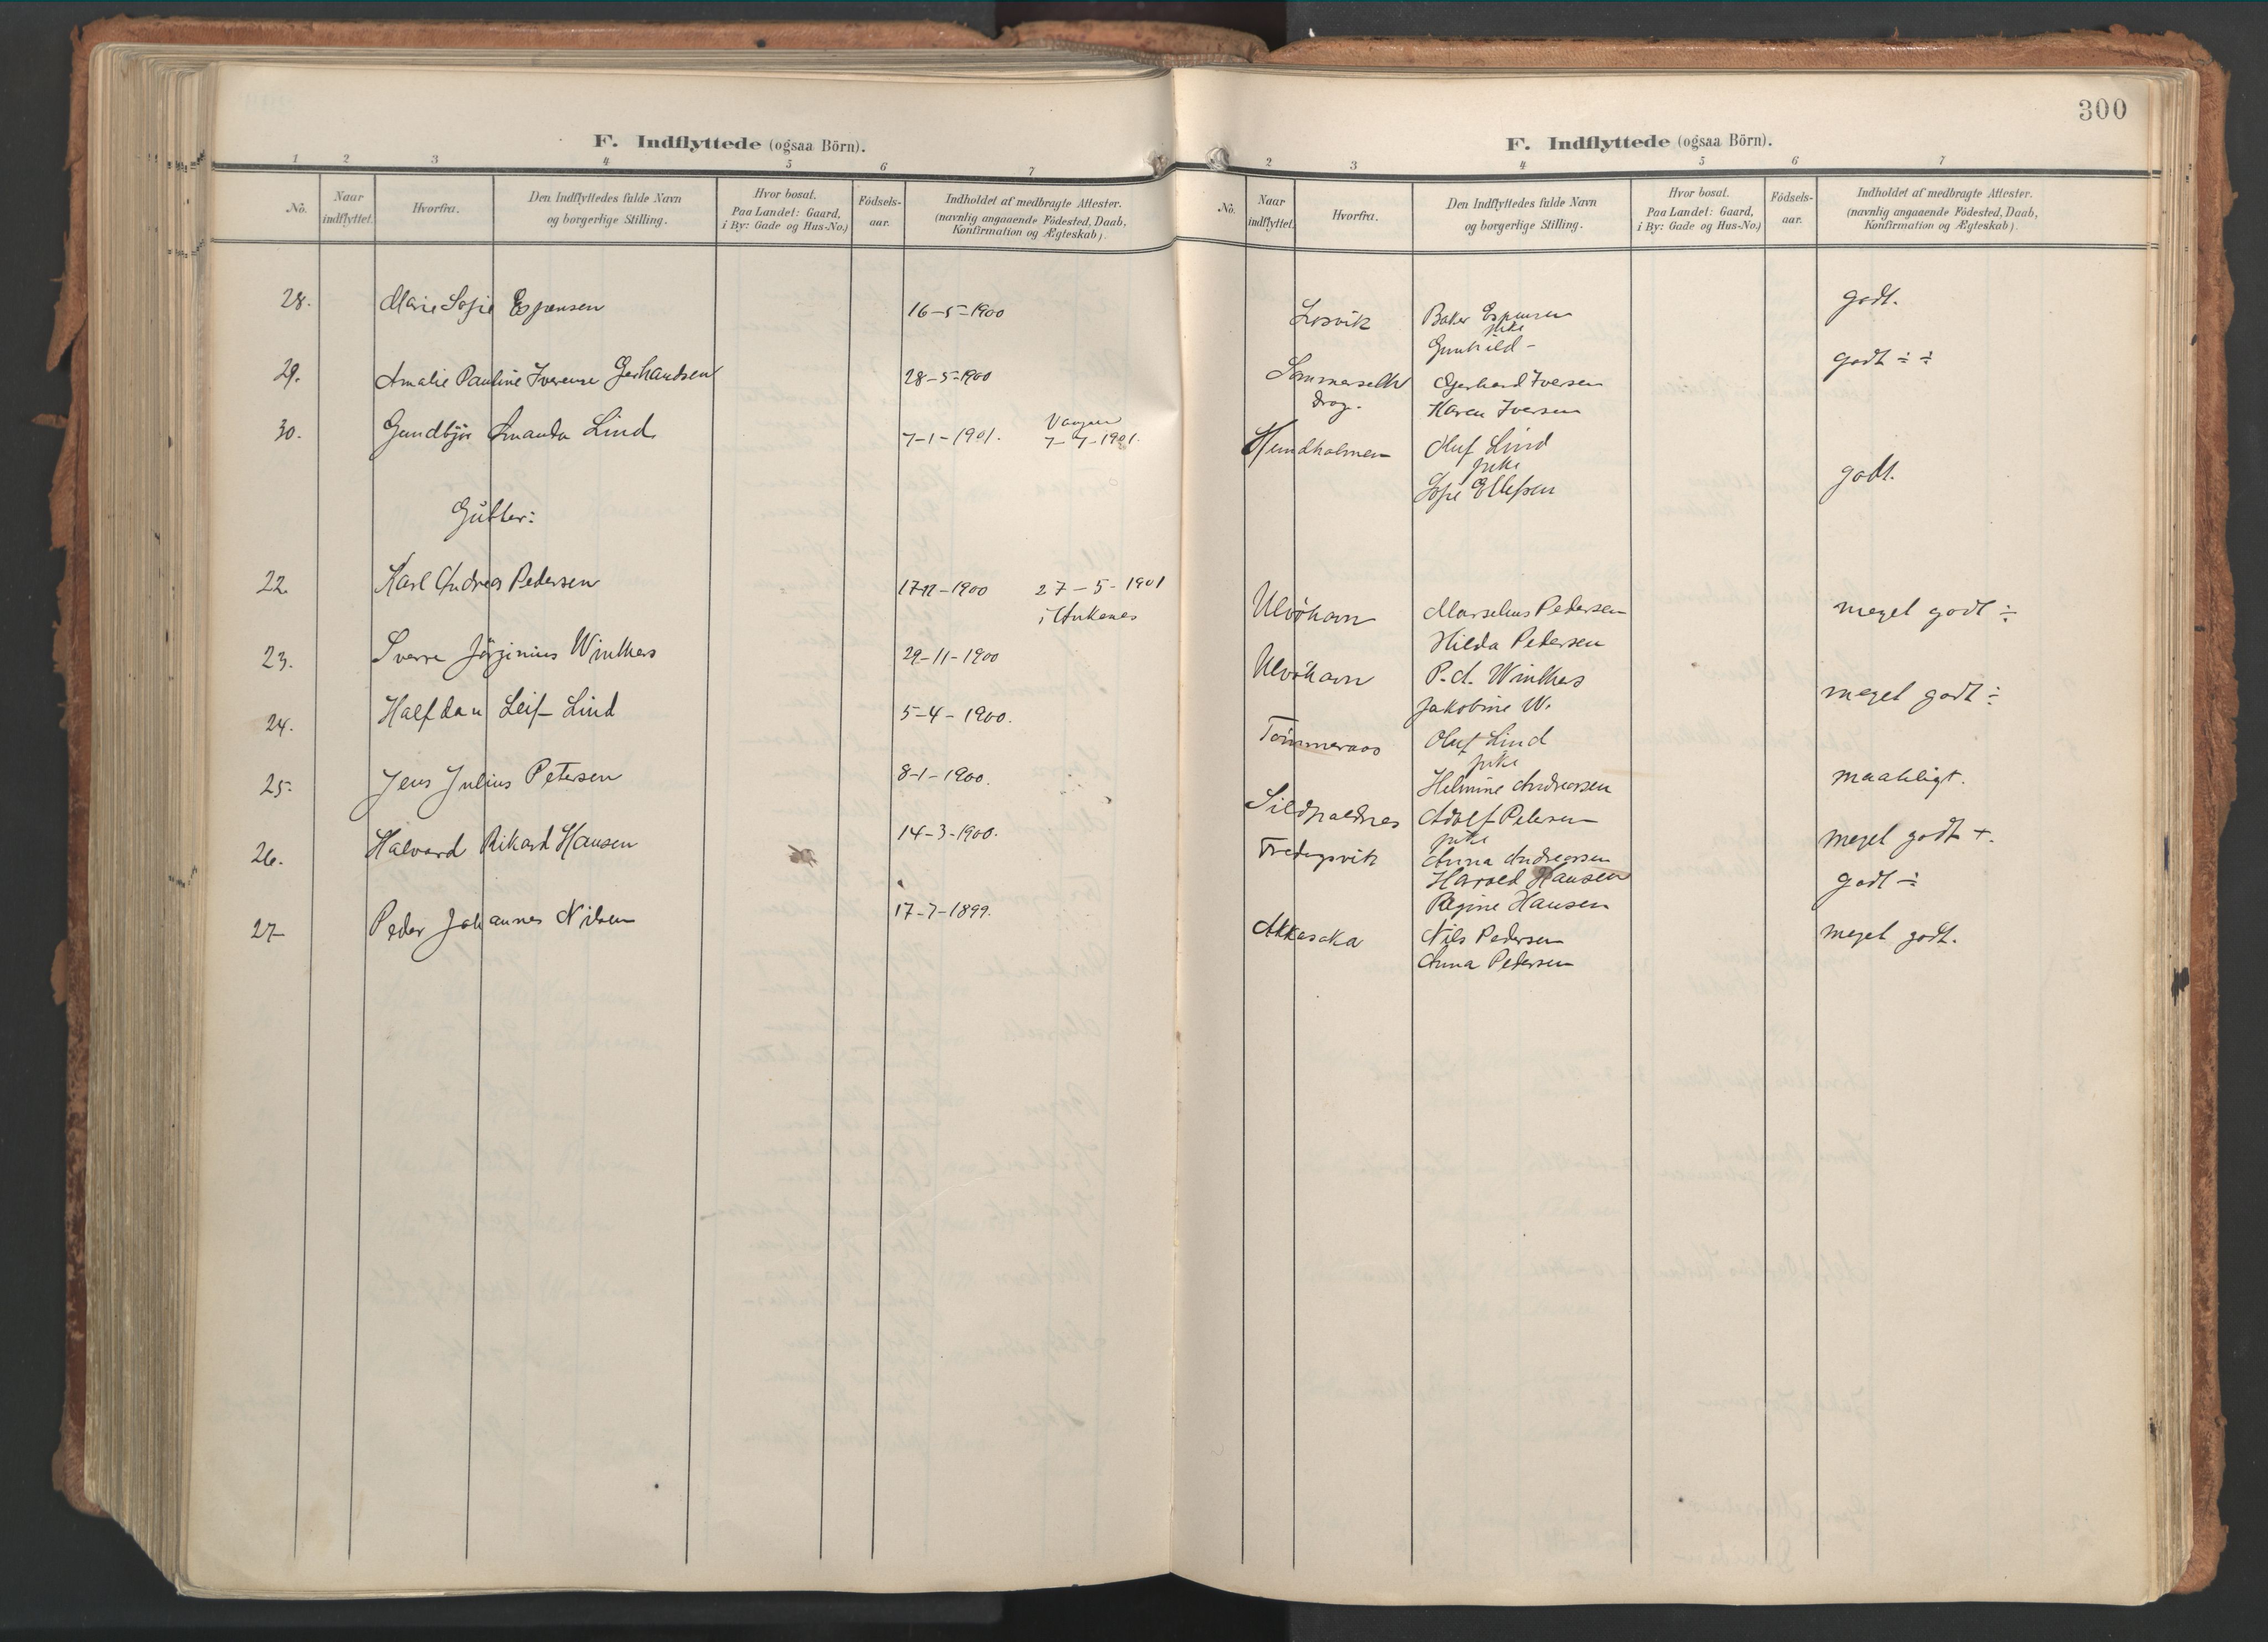 300
F. Indflyttede (ogsaa Börn).
1 2 3 4 5 6 7
No.
Naar indflyttet.
Hvorfra.
Den Indflyttedes fulde Navn og borgerlige Stilling.
Hvor bosat. Paa Landet: Gaard, i By: Gade og Hus-No.)
Födsels-aar.
Indholdet af medbragte Attester. (navnlig angaaende Födested, Daab, Konfirmation og Ægteskab).
28. Marie Sofie Espensen 16-5-1900
29. Amalie Pauline Iverene Gerhardsen 28-5-1900
30. Gundbjör Amanda Lind 7-1-1901. 7-7-1901.
Gutter:
22. Karl Andreas Pedersen 17-12-1900 27-5-1901
i Ankenes
23. Sverre Jörginius Winthers 29-11-1900
24. Halfdan Leif Lind 5-4-1900.
25. Jens Julius Petersen 8-1-1900.
26. Halvard Rikard Hansen 14-3-1900.
27 Peder Johannes Nilsen 17-7-1899.
F. Indflyttede (ogsaa Börn).
2 3 4 5 6 7
No.
Naar indflyttet.
Hvorfra.
Den Indflyttedes fulde Navn og borgerlige Stilling.
Hvor bosat. Paa Landet: Gaard, i By: Gade og Hus-No.)
Födsels-aar.
Indholdet af medbragte Attester. (navnlig angaaende Födested, Daab, Konfirmation og Ægteskab).
Losvik Espensen godt.
pike
Gunhild -
Gerhard Iversen godt ÷ ÷
drag. Karen Iversen
Hundholmen Oluf Lind
pike godt.
Sofie Ellefsen
Ulvöhavn Marselius Pedersen meget godt ÷
Hilda Pedersen
Ulvöhavn P. A. Winthers meget godt ÷
Jakobine W.
Tömmeraas Oluf Lind
pike maateligt.
Helmine Andreassen
Sildpaldnes Adolf Petersen meget godt +.
pike
Anna Andreassen
Fredagsvik Harald Hansen godt ÷
Regine Hansen
Akkeseka Nils Pedersen meget godt.
Anna Pedersen